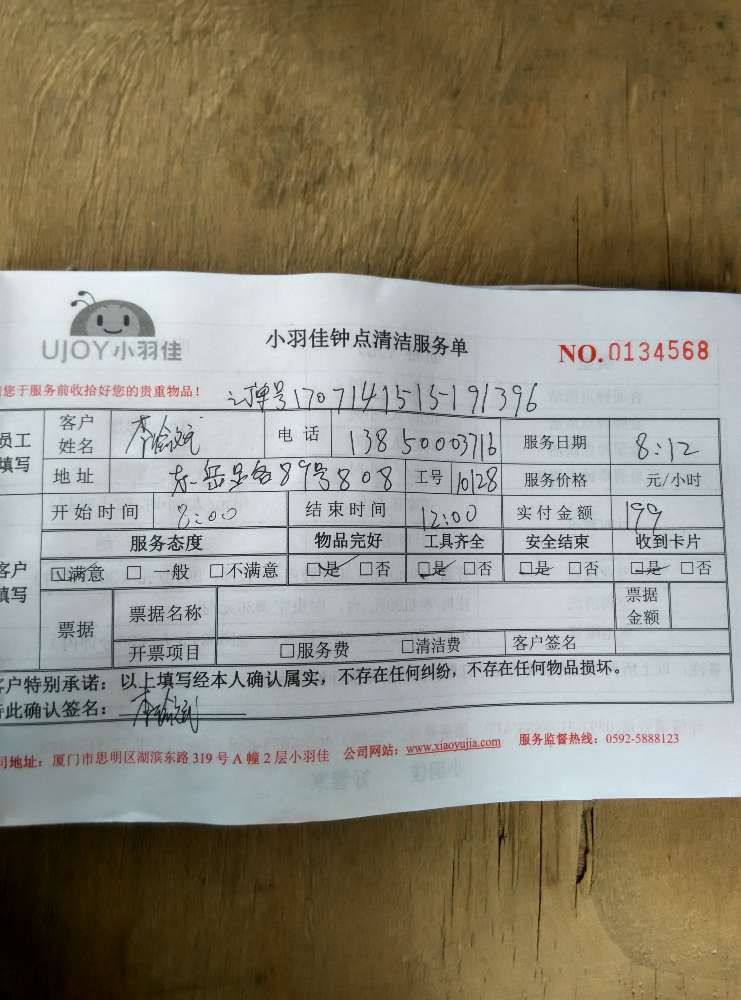 UJOY小羽佳
小羽佳钟点清洁服务单
NO.0134568
您于服务前收拾好您的贵重物品！
订单号1707141515191396
员工填写 客户姓名 李 电话 13850003716 服务日期 8:12
地址 东岳 89号808 工号 10128 服务价格 元/小时
客户填写 开始时间 8:00 结束时间 12:00 实付金额 199
服务态度 物品完好 工具齐全 安全结束 收到卡片
☑满意 □ 一般 □不满意 ☑是 □否 ☑是 □否 ☑是 □否 ☑是 □否
票据 票据名称 票据金额
开票项目 □服务费 □清洁费 客户签名
客户特别承诺：以上填写经本人确认属实，不存在任何纠纷，不存在任何物品损坏。
特此确认签名：李
司地址：厦门市思明区湖滨东路319号A幢2层小羽佳 公司网站：www.xiaoyujia.com 服务监督热线：0592-5888123